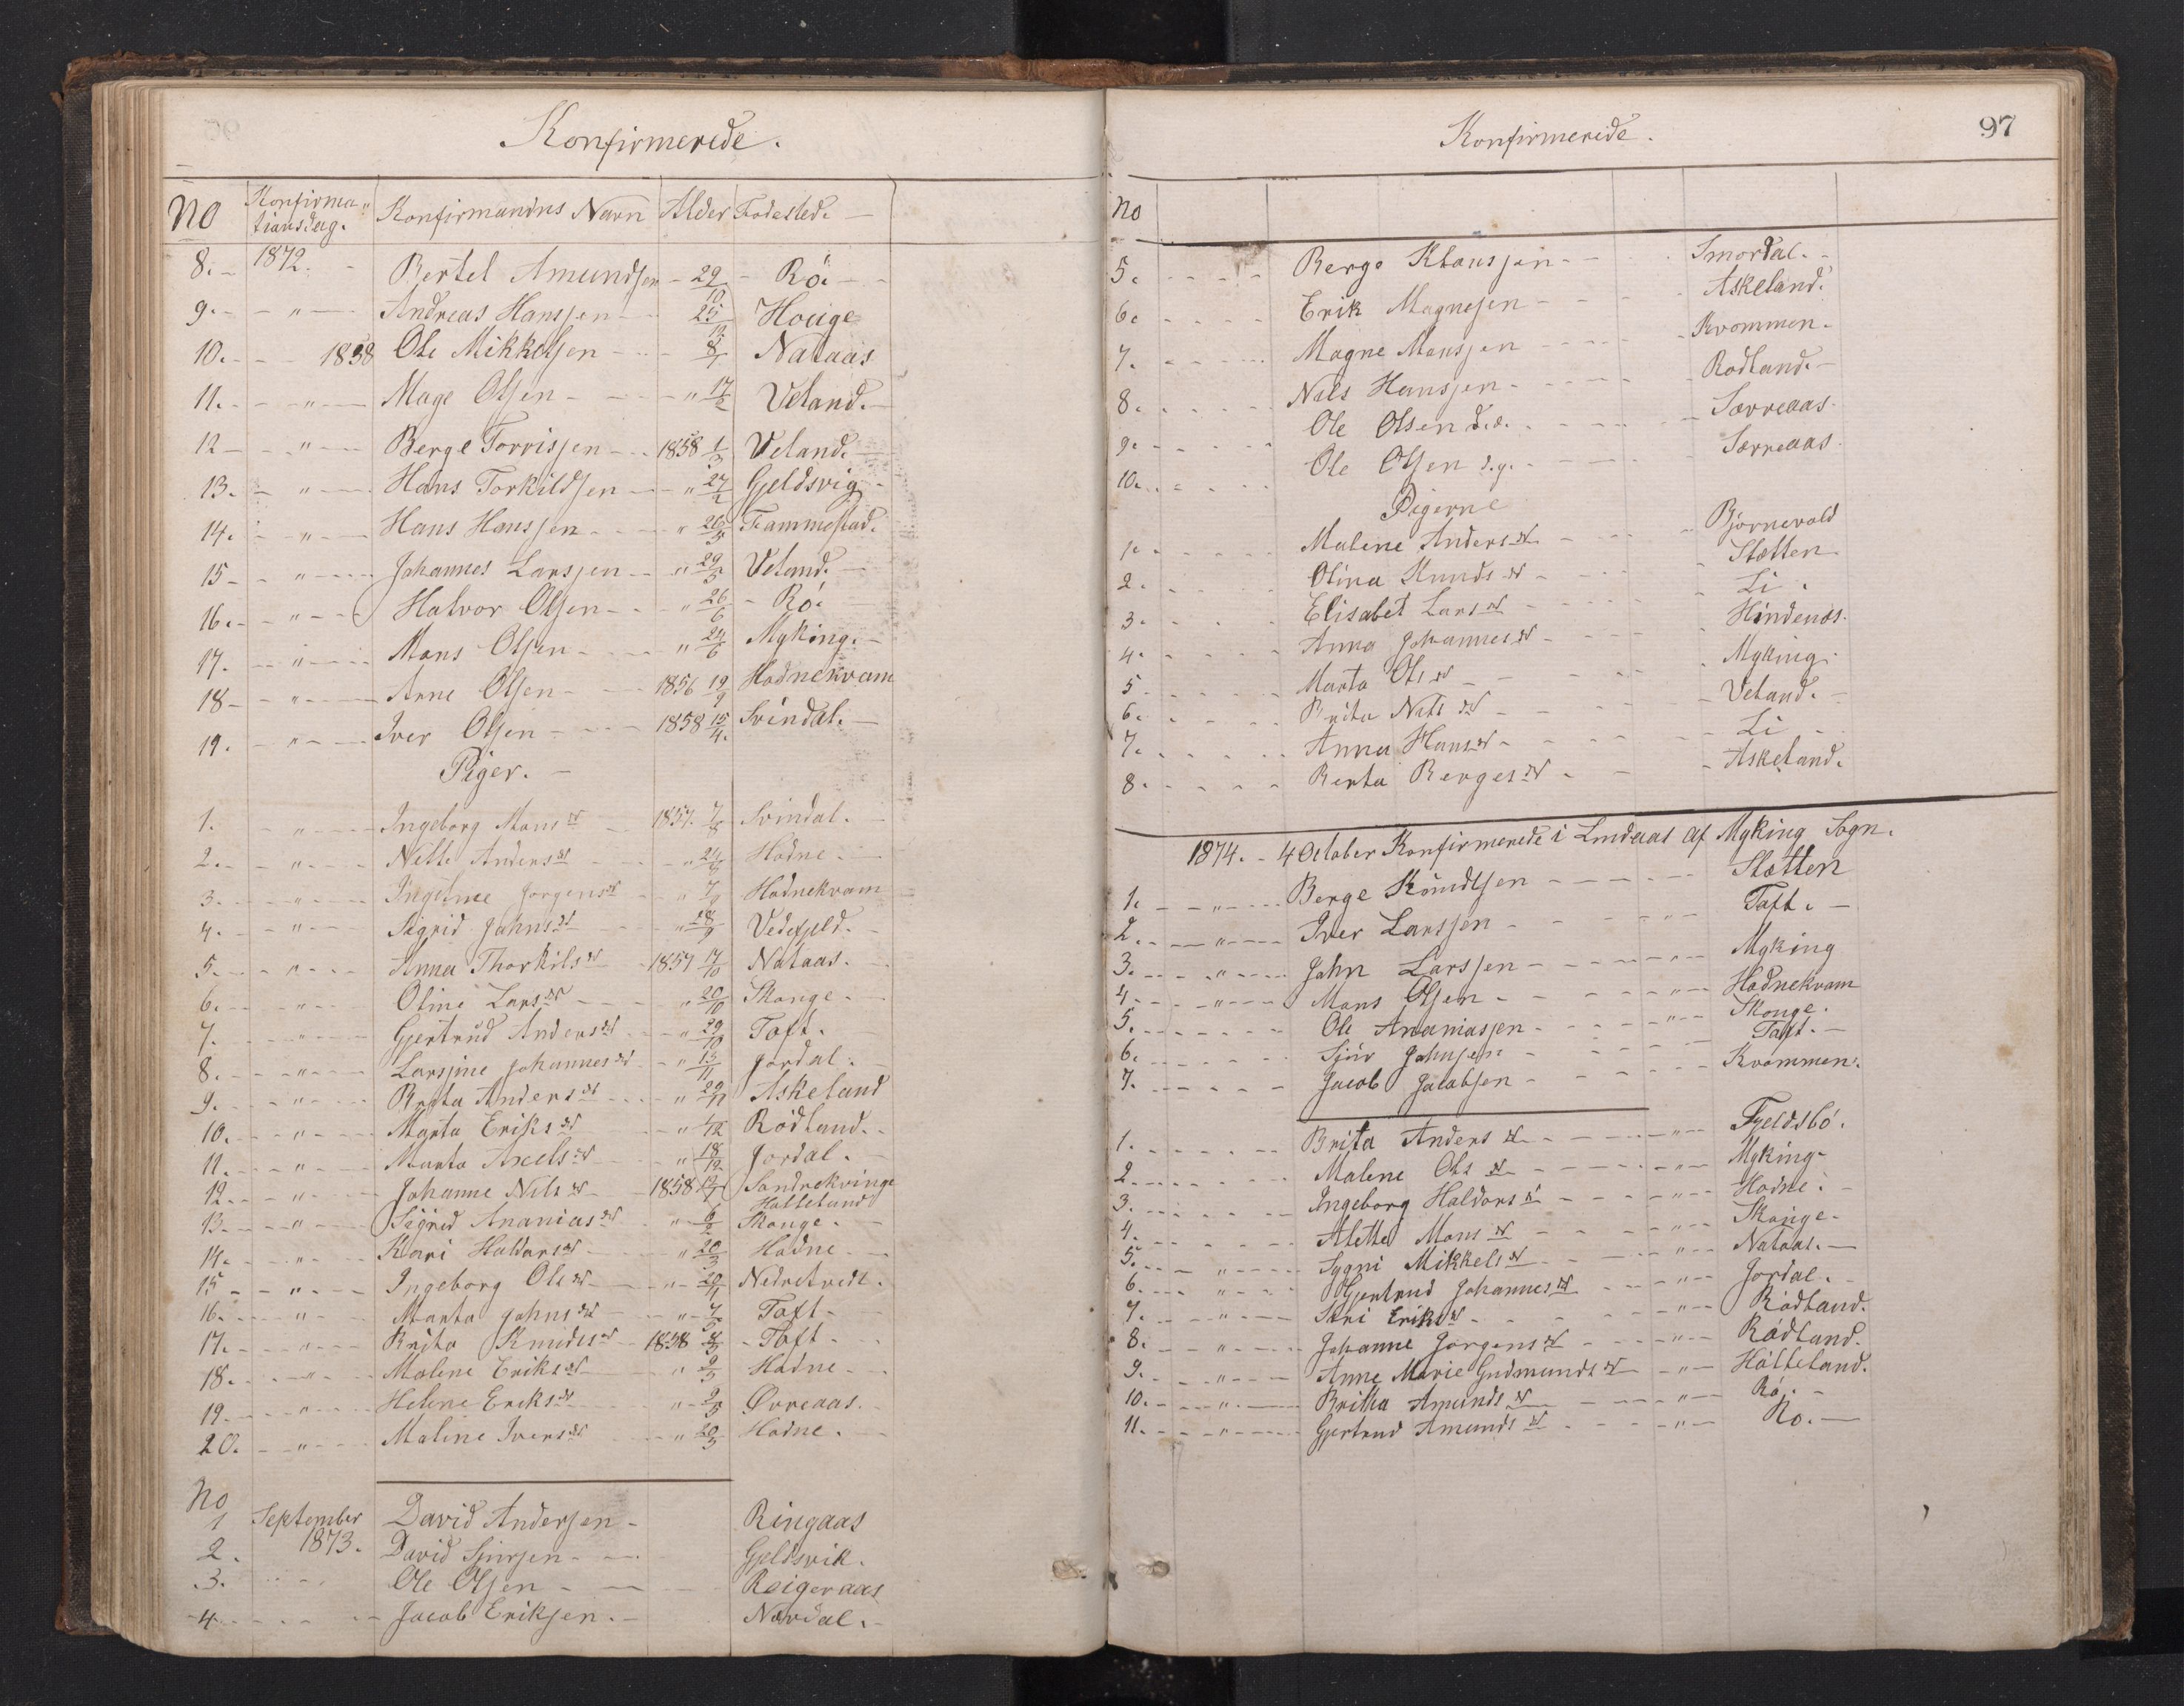 Konfirmerede.
No Konfirma„ tionsdag. Konfirmandns Navn Alder Fødested.
8. 1872. Bertel Amundsen 29/10 Rö.
9. " Andreas Hanssen 25/12 Houge
10. 1858 Ole Mikkelsen 8/1 Nataas
11. " Mage Olsen " 17/2 Veland.
12 " Berge Torrissen 1858 1/3 Veland.
13. " Hans Torkildsen " 27/2 Gjeldsvig
14. " Hans Hanssen " 20/5 Frammestad.
15 " Johannes Larssen " 29/5 Veland.
16. " Halvor Olsen " 26/6 Rö.
17. " Mons Olsen " 24/6 Myking.
18 " Arne Olsen 1856 19/9 Hodnekvam
19. " Iver Olsen 1858 15/4. Svindal.
Piger.
1. " Ingeborg Mons D 1857. 7/8 Svindal.
2. " Nille Anders D " Hodne.
3. " Jorgens D " Hodnekvam
4. " Sigrid Johns D " 18/9 Vedefjeld.
5. " Anna Thorkils D 1857 17/10 Nataas.
6. " Oline Lars D " 20/10 Skouge.
7. " Gjertrud Anders D 29/10 Toft.
8. " Larsine Johannes D " 15/11 Jordal.
9. " Brita Anders D " 29/11 Askeland
10. " Marta Eriks D " Rödland.
11. " Marta Axels D " 18/12 Jordal.
12. " Johanne Nils D 1858 Sondrekvinge
Halleland
13. " Sigrid Ananias D " 6/2 Skouge.
14. " Kari Haldors D " 20/3 Hodne
15 " Ingeborg Ols D " Nedretvedt.
16. " Marta Johns D " 7/5 Toft
17. " Brita Knuds D 1858 Toft.
18. " Malene Eriks D " 2/5 Hodne
19. " Helene Eriks D " 2/5 Øvreaas.
20. " Maline Ivers D " 20/5 Hodne.
No
1 September David Andersen Ringaas
2. 1873. David Sjursen Gjeldsvik.
3. Ole Olsen Reigeraas
4. Jacob Eriksen. Nordal.
Konfirmerede. 97
No
5. Berge Klaussen Smordal.
6. Erik Magnesen Askeland.
7. Magne Monssen Kvommen.
8. Nils Hanssen Rodland.
9. Ole Olsen d.æ. Særreaas.
10. Ole Olsen d.y. Særreaas.
Pigerne
1. Malene Anders D Bjørnevold
2. Olina Knuds D Stetten
3. Elisabet Lars D Li.
4. Anna Johannes D Hindenæs.
5 Marta Ols D Myking.
6. Brita Nils D Veland.
7. Anna Hans D Li
8. Berta Berges D Askeland.
1874. 4 October Konfirmerede i Lindaas af Myking Sogn.
1. " Berge Knudsen Stetten
2. " Iver Larssen " Toft.
3. " John Larssen " Myking
4. " Mons Olsen " Hodnekvam
5. Ole Ananiassen " Skouge.
6. Sjur Johnsen Toft.
7. Jacob Jacobsen Kvommen.
1. Brita Anders D " Fjeldsbö.
2. Malene Ols D " Myking
3. Ingeborg Haldors D " Hodne.
4. Alette Mons D " Skouge.
5. " Sygni Mikkels D " Nataas.
6. " Gjertrud Johannes D " Jordal.
7. " Siri Eriks D " Rödland.
8. " Johanne Jørgens D " Rödland.
9. " Anne Marie Gudmunds D " Hölleland.
10. " Britha Amunds D " Rö.
11. " Gjertrud Amunds D " Ro.